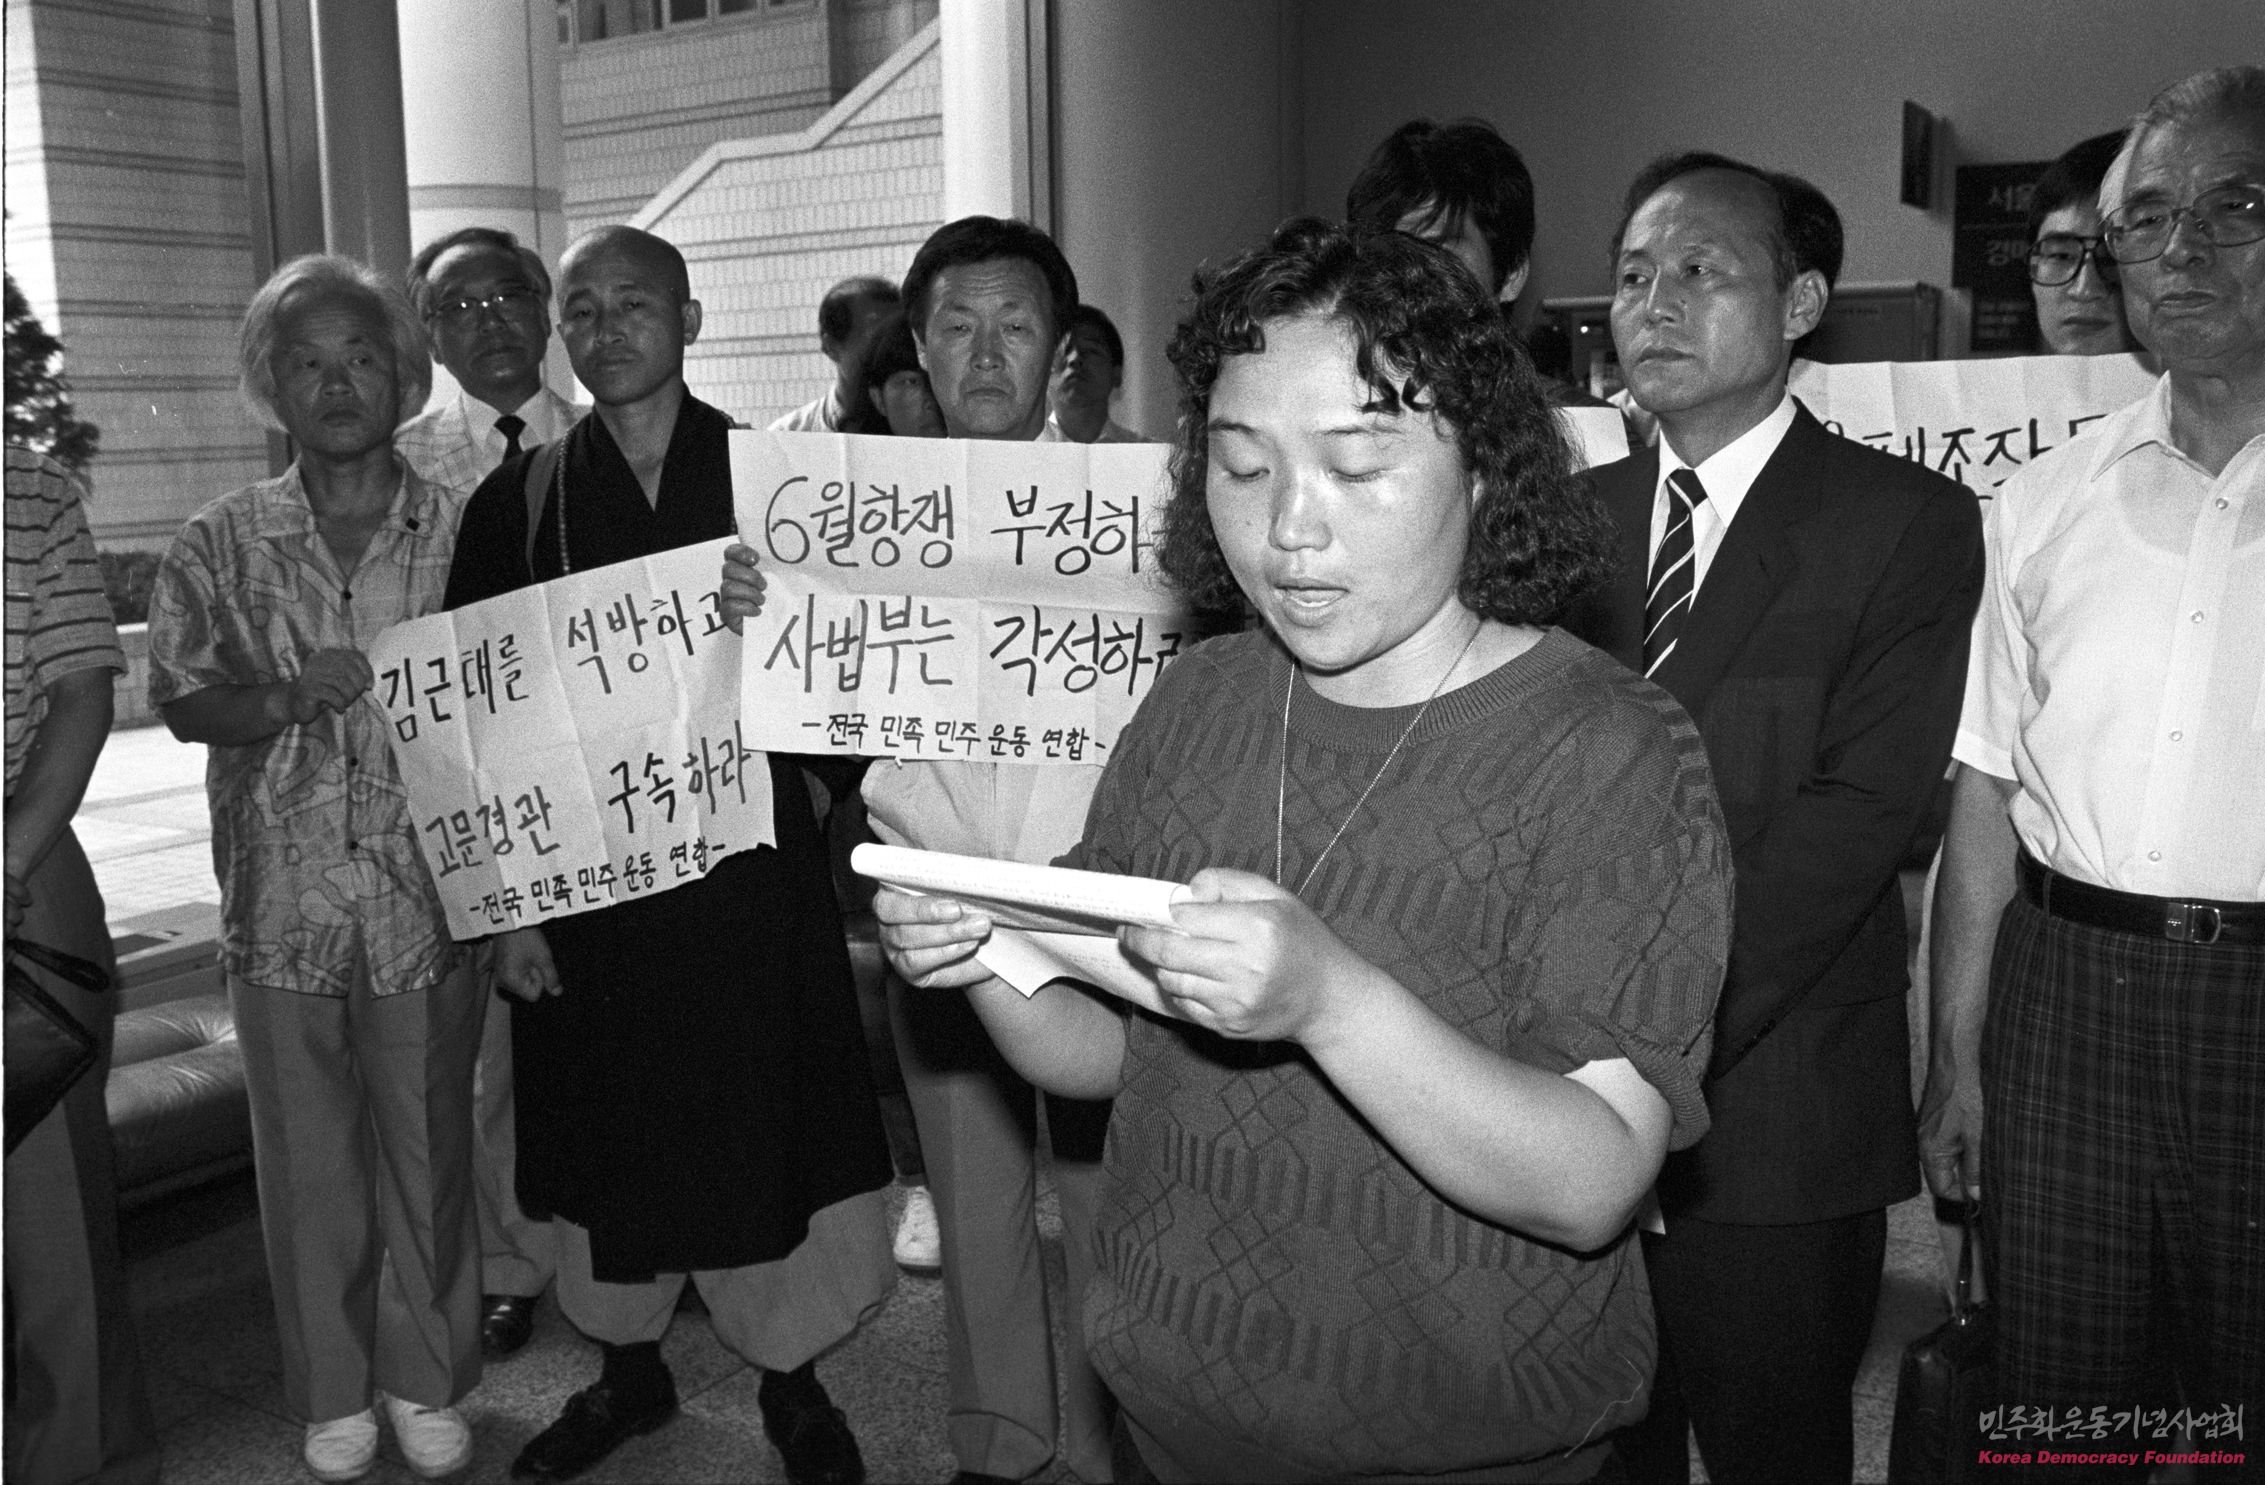 김근태를 석방하고
고문경관 구속하라
-전국 민족 민주 운동 연합-
6월항쟁 부정하
사법부는 각성하
-전국 민족 민주 운동 연합-
조작
서울
경매
민주화운동기념사업회
Korea Democracy Foundation